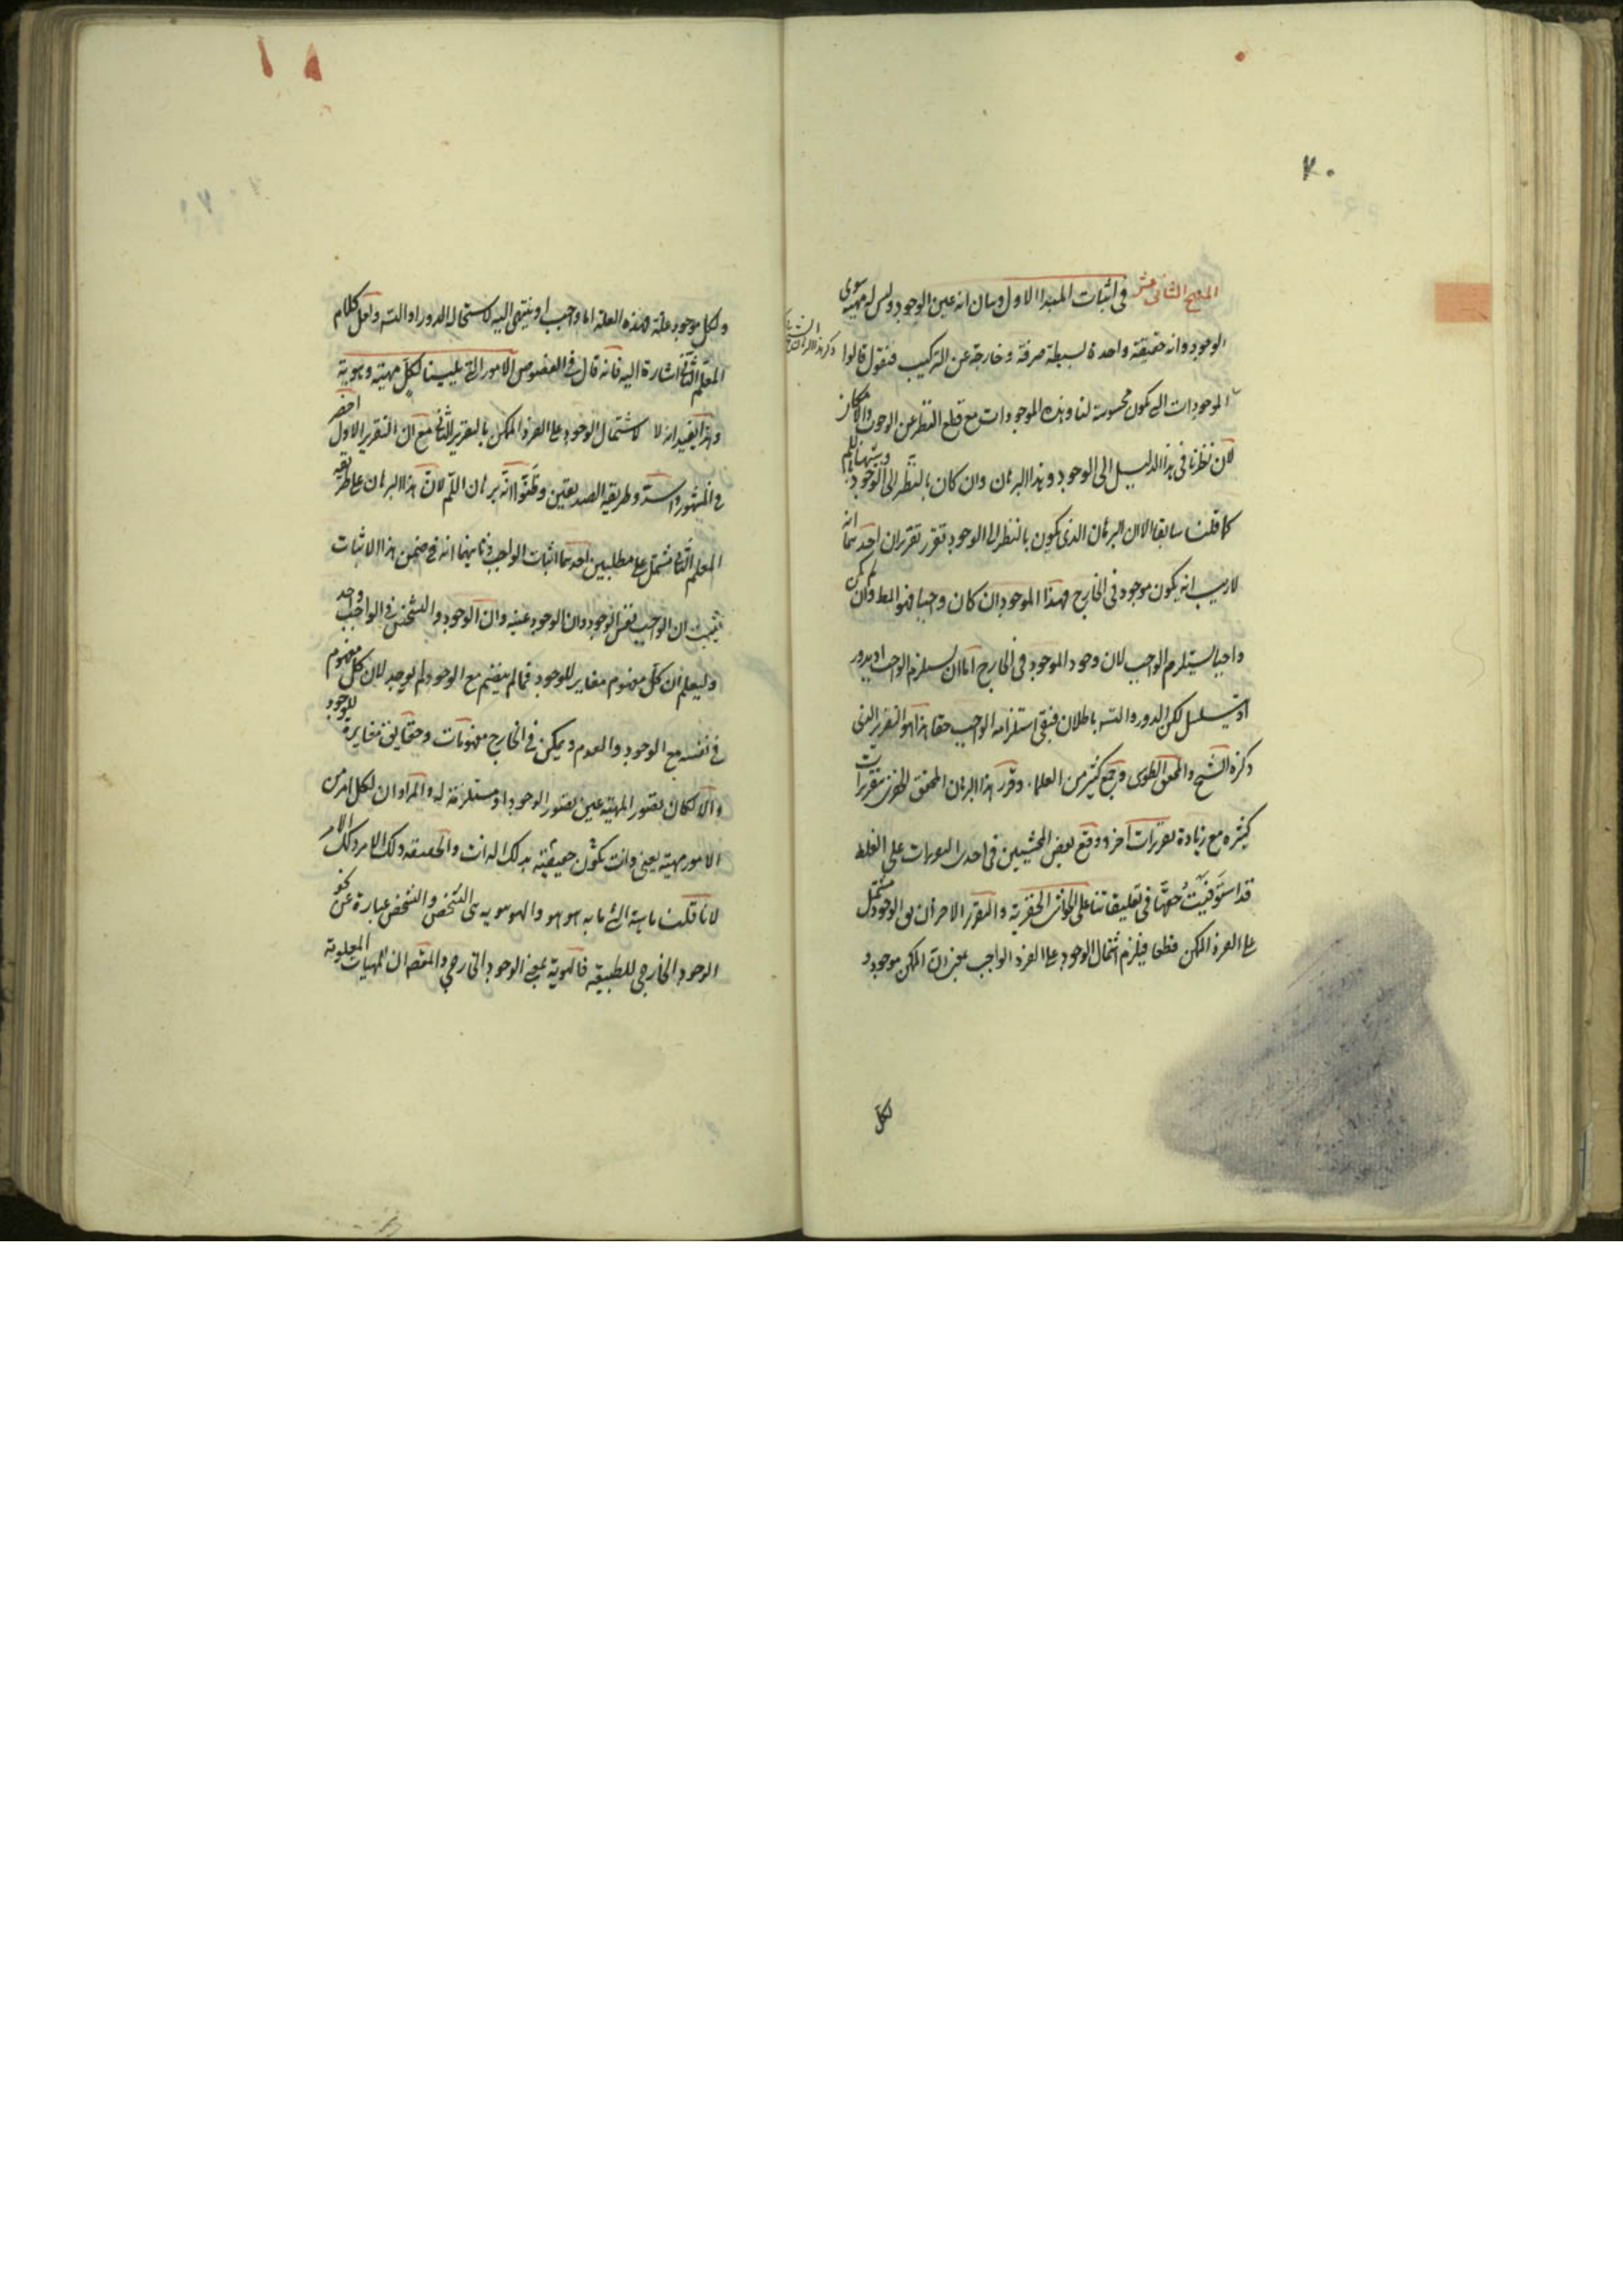 ٧٠
المنهج الثانى عشر فى اثبات المبدا الاول وبيان انه عين الوجود وليس له مهية سوى
الوجود وانه حقيقة واحدة بسيطة صرفة وخارجة عن التركيب فنقول قالوا
الموجودات التى يكون محسوسة لنا وبهذه الموجودات مع قطع النظر عن الوجوب والامكان
لان نظرنا فى هذا الدليل الى الوجود وهذا البرهان وان كان بالنظر الى الوجود
كما قلنا سابقا الا ان البرهان الذى يكون بالنظر الى الوجود تقرر تقريران احدهما انه
لا ريب انه يكون موجود فى الخارج فهذا الموجود ان كان واجبا فهو المط وان لم يكن
واجبا يستلزم الواجب لان وجود الموجود فى الخارج اما ان يستلزم الواجب او يدور
او يتسلسل لكن الدور والتسـ باطلان فبقى استلزامه الواجب حقا هذا هو التقرير الذى
ذكره الشيخ والمحقق الطوسى وجمع كثير من العلماء وقرر هذا البرهان المحقق الخفرى بتقريرات
كثيره مع زيادة تقريرات اخر ووقع بعض المحشيين فى احدى التقريرات على الغلط
قد استوفيت حقها فى تعليقاتنا على الحواشى الخفرية والتقرير الاخر ان يق الوجود مشتمل
على الفرد الممكن قطعا فيلزم اشتمال الوجود على الفرد الواجب بمعنى ان الممكن موجود و
لكل
ولكل موجود علة فهذه العلة اما واجب او ينتهى اليه لاستحالة الدور او التسـ ولعل كلام
المعلم الثانى اشارة اليه فانه قال فى الفصوص الامور التى يلينا لكل مهية وهوية
وهذا يفيد انه لا لاشتمال الوجود على الفرد الممكن بالتقرير الثانى مع ان التقرير الاول اخصر
فى المشهور واسد وطريقة الصديقين وظنوا انه برهان اللم لان هذا البرهان على طريقة
المعلم الثانى مشتمل على مطلبين احدهما اثبات الواجب وثانيهما انه فى ضمن هذا الاثبات
يثبت ان الواجب نفس الوجود وان الوجود عينه وان الوجود والتشخص فى الواجب واحد
وليعلم ان كل مفهوم مغاير للوجود فما لم ينضم مع الوجود لم يوجد لان كل مفهوم
فى نفسه مع الوجود والعدم ويمكن فى الخارج مفهومات وحقايق مغايرة للوجود
والا لكان تصور المهية عين تصور الوجود او مستلزمة له والمراد ان لكل امر من
الامور مهية يعنى ذات تكون حقيقته بذلك الذات والحقيقة ذلك الامر ذلك الامر
لانا قلنا ماهية الشئ ما به هو هو والهو هويه هى التشخص والتشخص عبارة عن نحو
الوجود الخارجى للطبيعة فالهوية بمعنى الوجود الخارجى والمقصد ان المهيات المعلومة